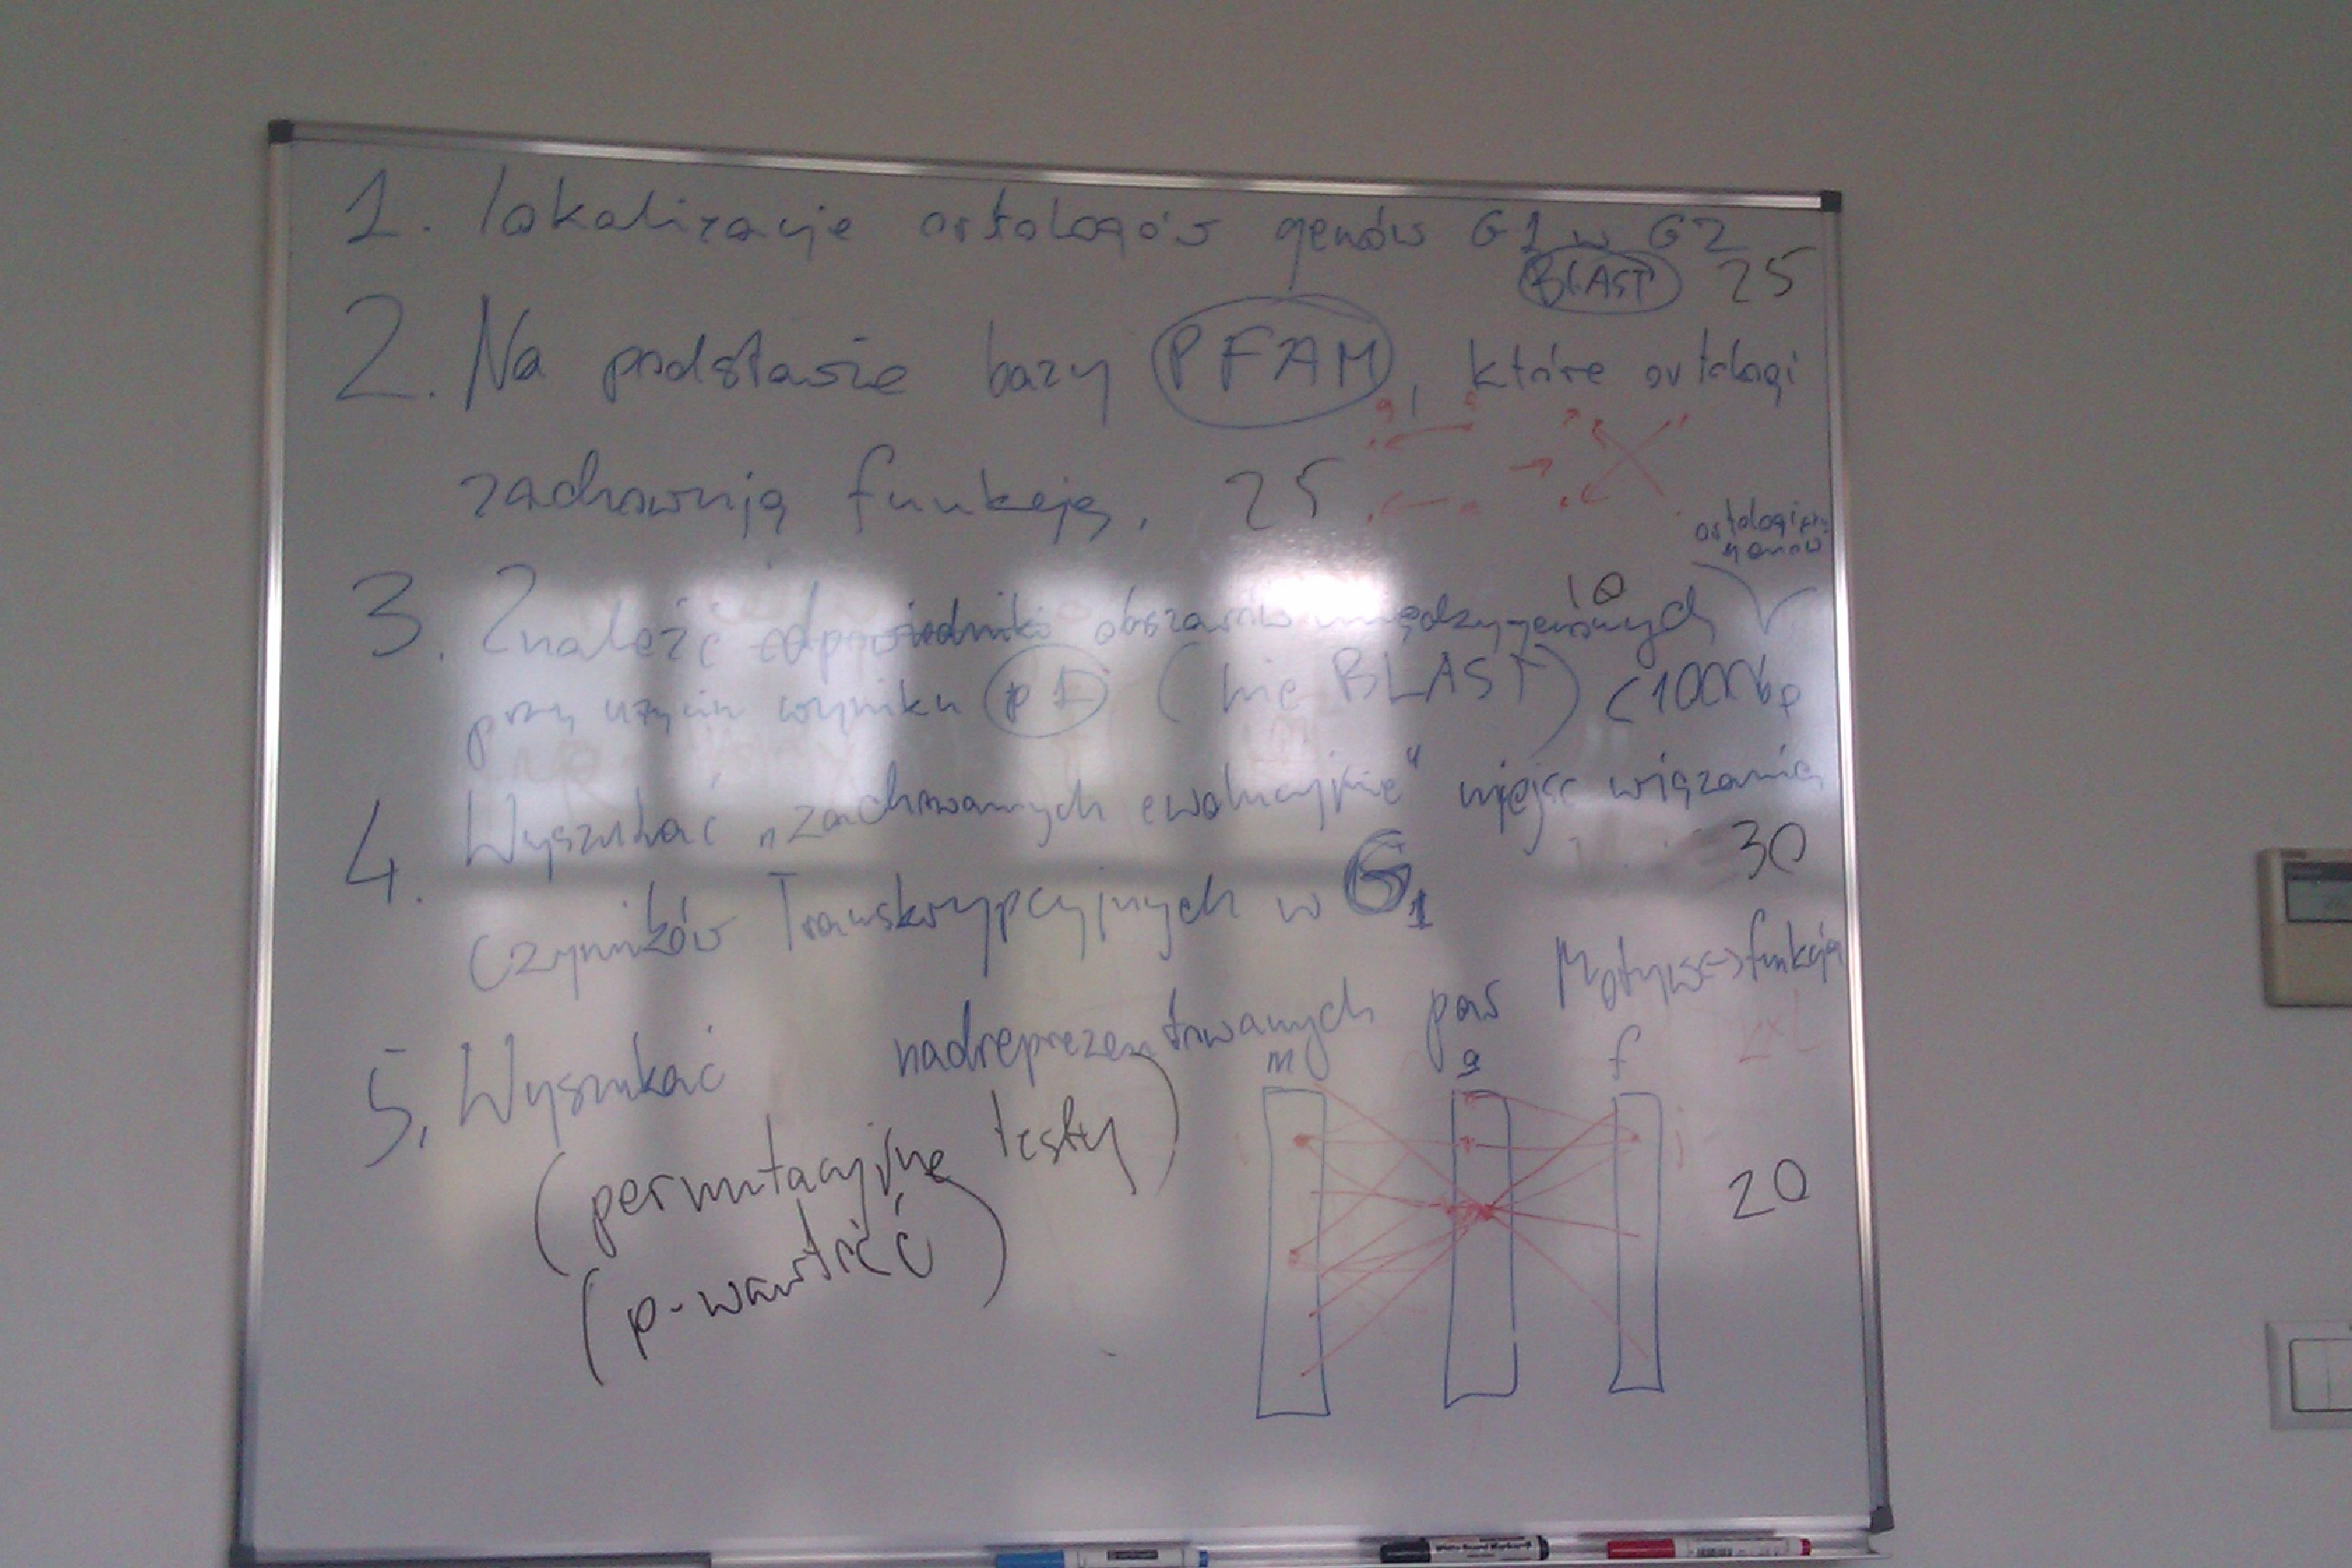 1. lokalizacje ortologów genów G1 w G2
BLAST 25
2. Na podstawie bazy PFAM, które ortologi
zachowują funkcję. 25
ortologiczny
genów
10
3. Znaleźć odpowiedniki obszarów międzygenowych
przy użyciu wyniku p 1 (nie BLAST) (1000bp
4. Wyszukać „zachowanych ewolucyjnie" miejsc wiązania
30
czynników Transkrypcyjnych w G1
5. Wyszukać nadreprezentowanych par Motyw<->funkcja
m g f
(permutacyjne testy)
(p-wartość)
20